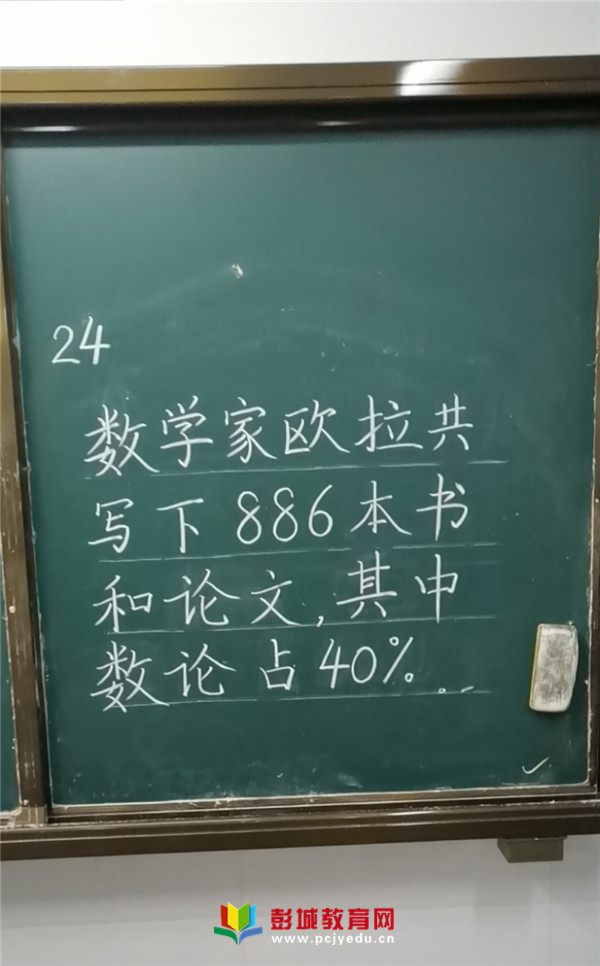 24
数学家欧拉共
写下886本书
和论文,其中
数论占40%。
彭城教育网
www.pcjyedu.cn